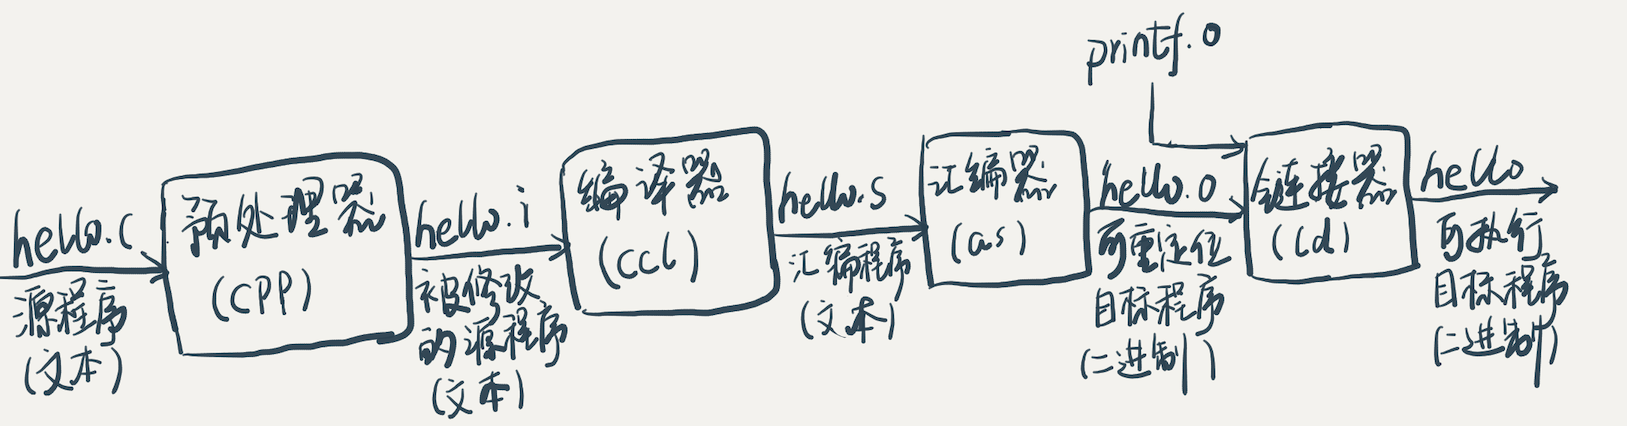 printf.o
hello.c
源程序
(文本)
预处理器
(cpp)
hello.i
被修改
的源程序
(文本)
编译器
(ccl)
hello.s
汇编程序
(文本)
汇编器
(as)
hello.o
可重定位
目标程序
(二进制)
链接器
(ld)
hello
可执行
目标程序
(二进制)